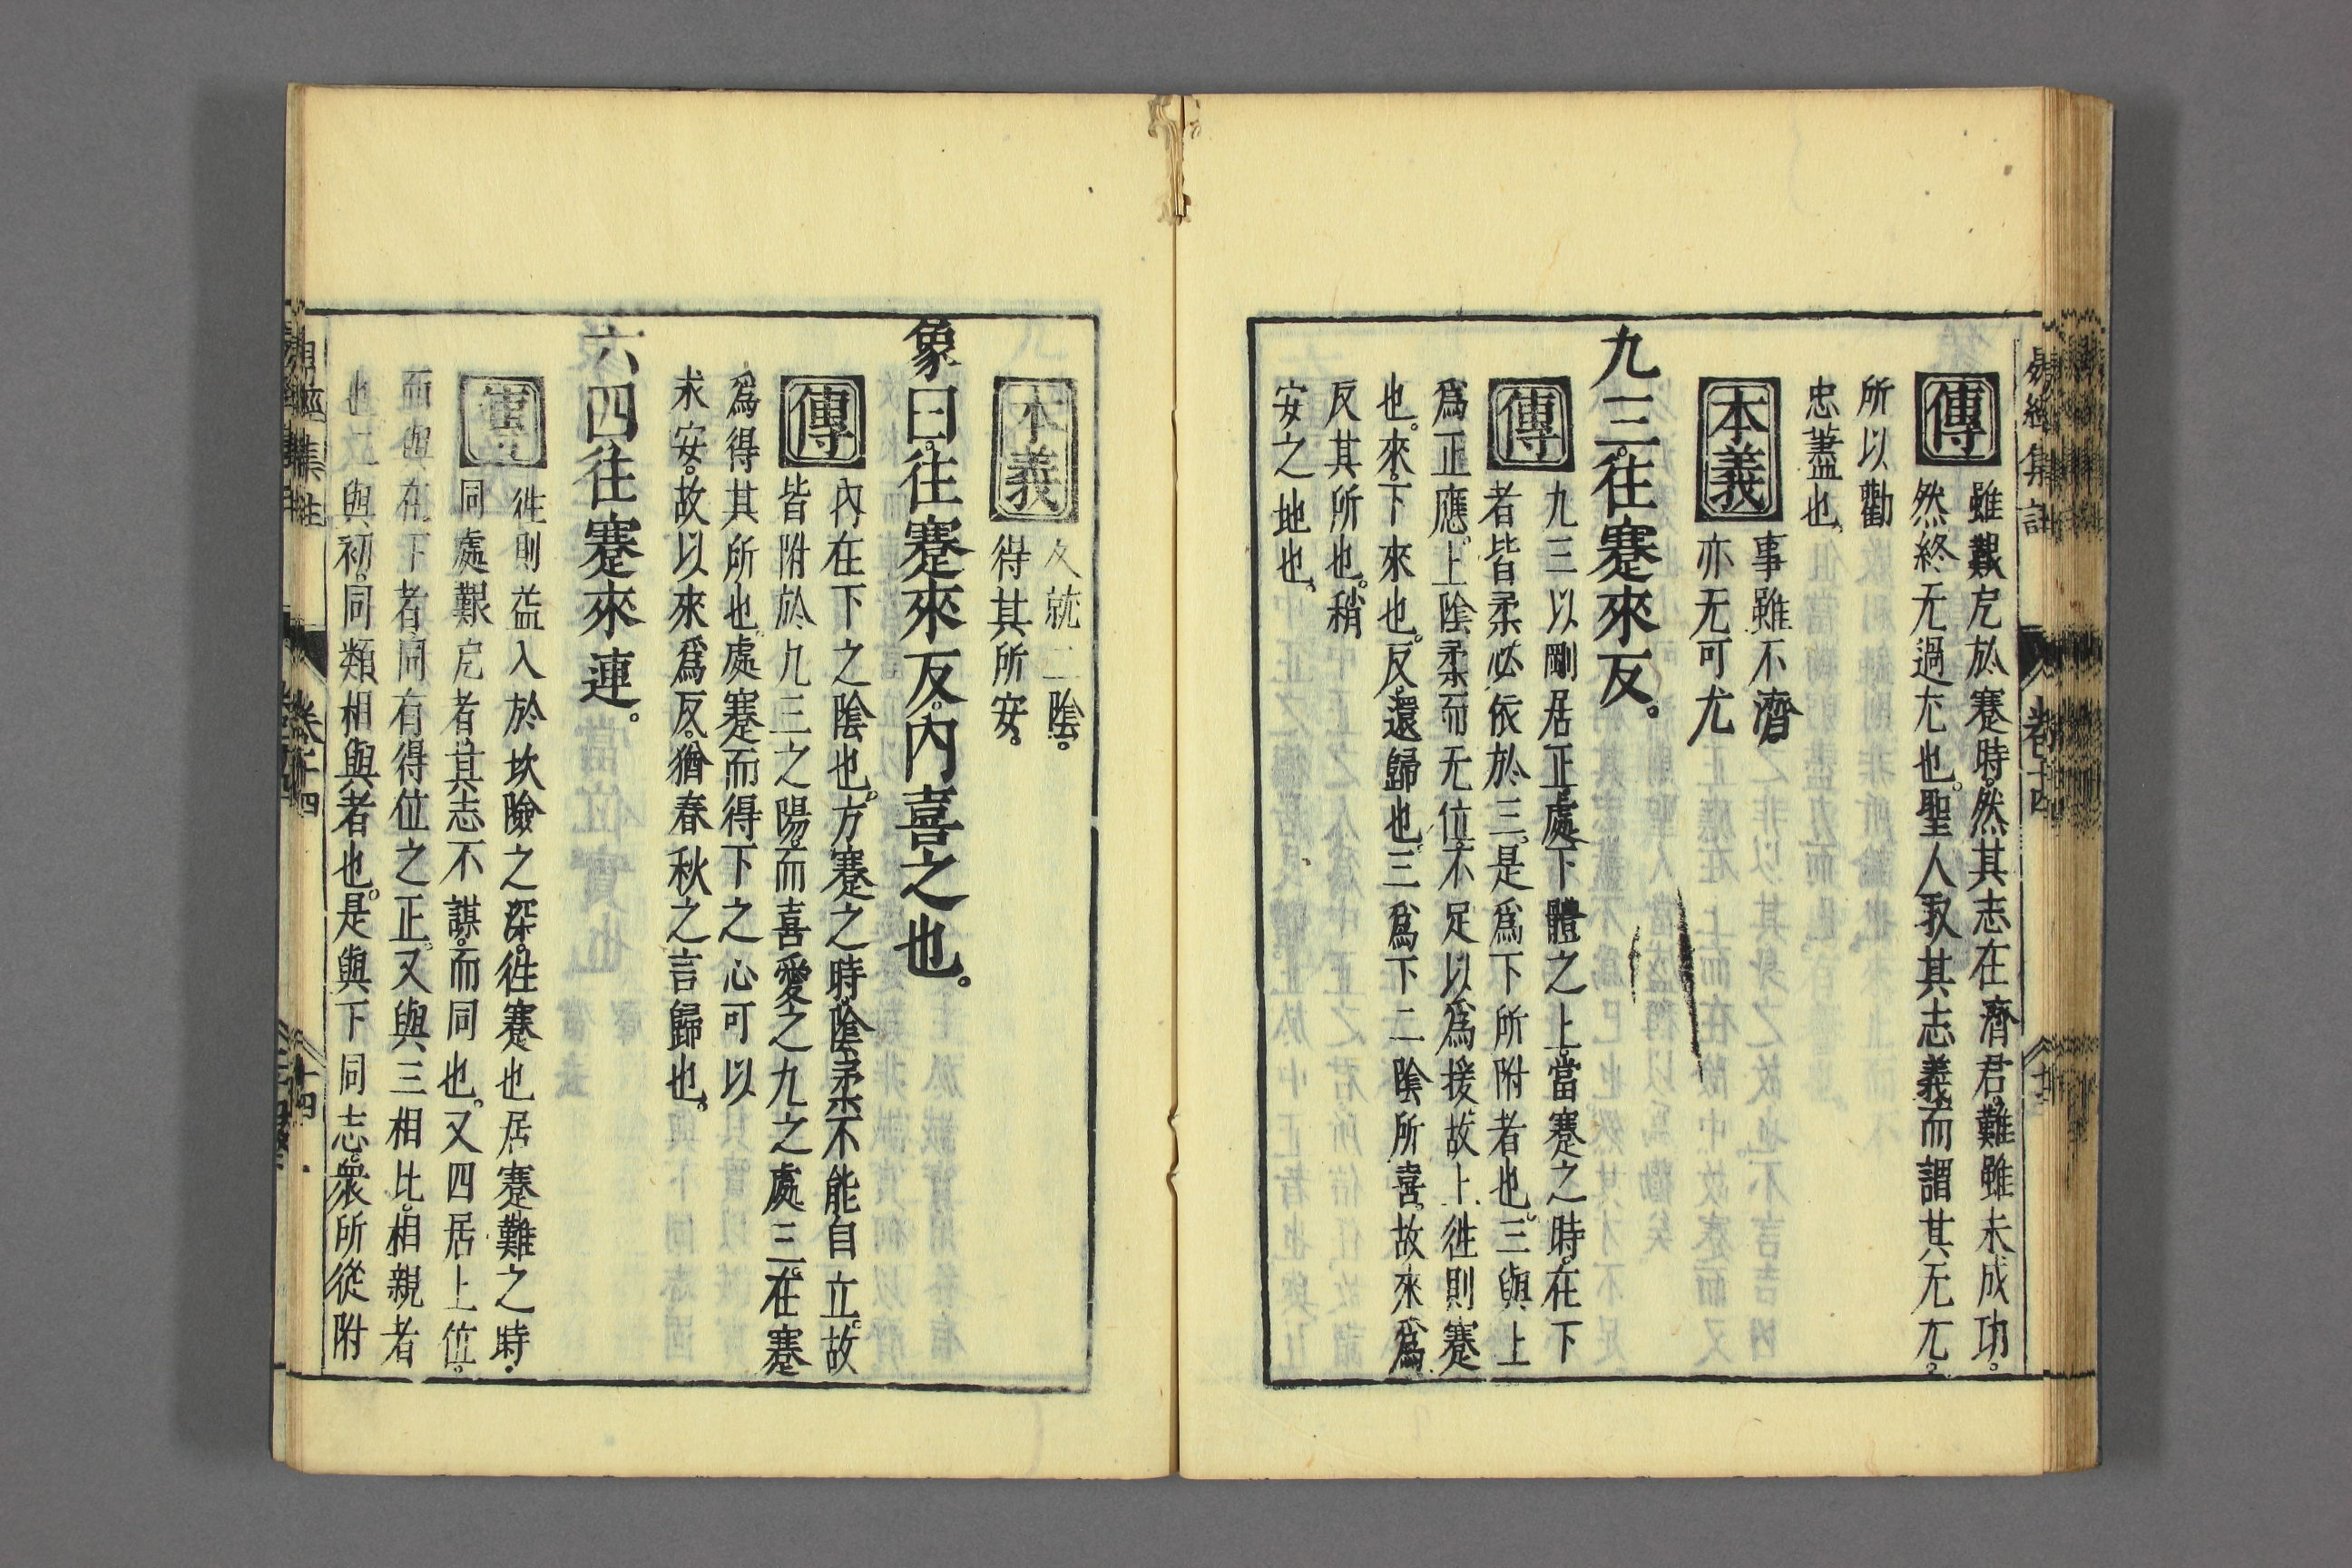 易經集註 卷十四
傳 雖艱戹於蹇時。然其志在濟君難。雖未成功。
然終无過尤也。聖人取其志義。而謂其无尤。
所以勸
忠藎也。
本義 事雖不濟。
亦无可尤
九三。往蹇來反。
傳 九三以剛居正。處下體之上。當蹇之時。在下
者皆柔。必依於三。是爲下所附者也。三與上
爲正應。上陰柔而无位。不足以爲援。故上往則蹇
也。來。下來也。反。還歸也。三爲下二陰所喜。故來爲
反其所也。稍
安之地也。
本義 反就二陰。
得其所安。
象曰。往蹇來反。內喜之也。
傳 內在下之陰也。方蹇之時。陰柔不能自立。故
皆附於九三之陽。而喜愛之。九之處三。在蹇
爲得其所也。處蹇而得下之心。可以
求安。故以來爲反。猶春秋之言歸也。
六四往蹇來連。
傳 往則益入於坎險之深。往蹇也。居蹇難之時。
同處艱戹者。其志不謀。而同也。又四居上位。
而與在下者。同有得位之正。又與三相比。相親者
也。二與初。同類相與者也。是與下同志。衆所從附
易經集註 卷十四 十四